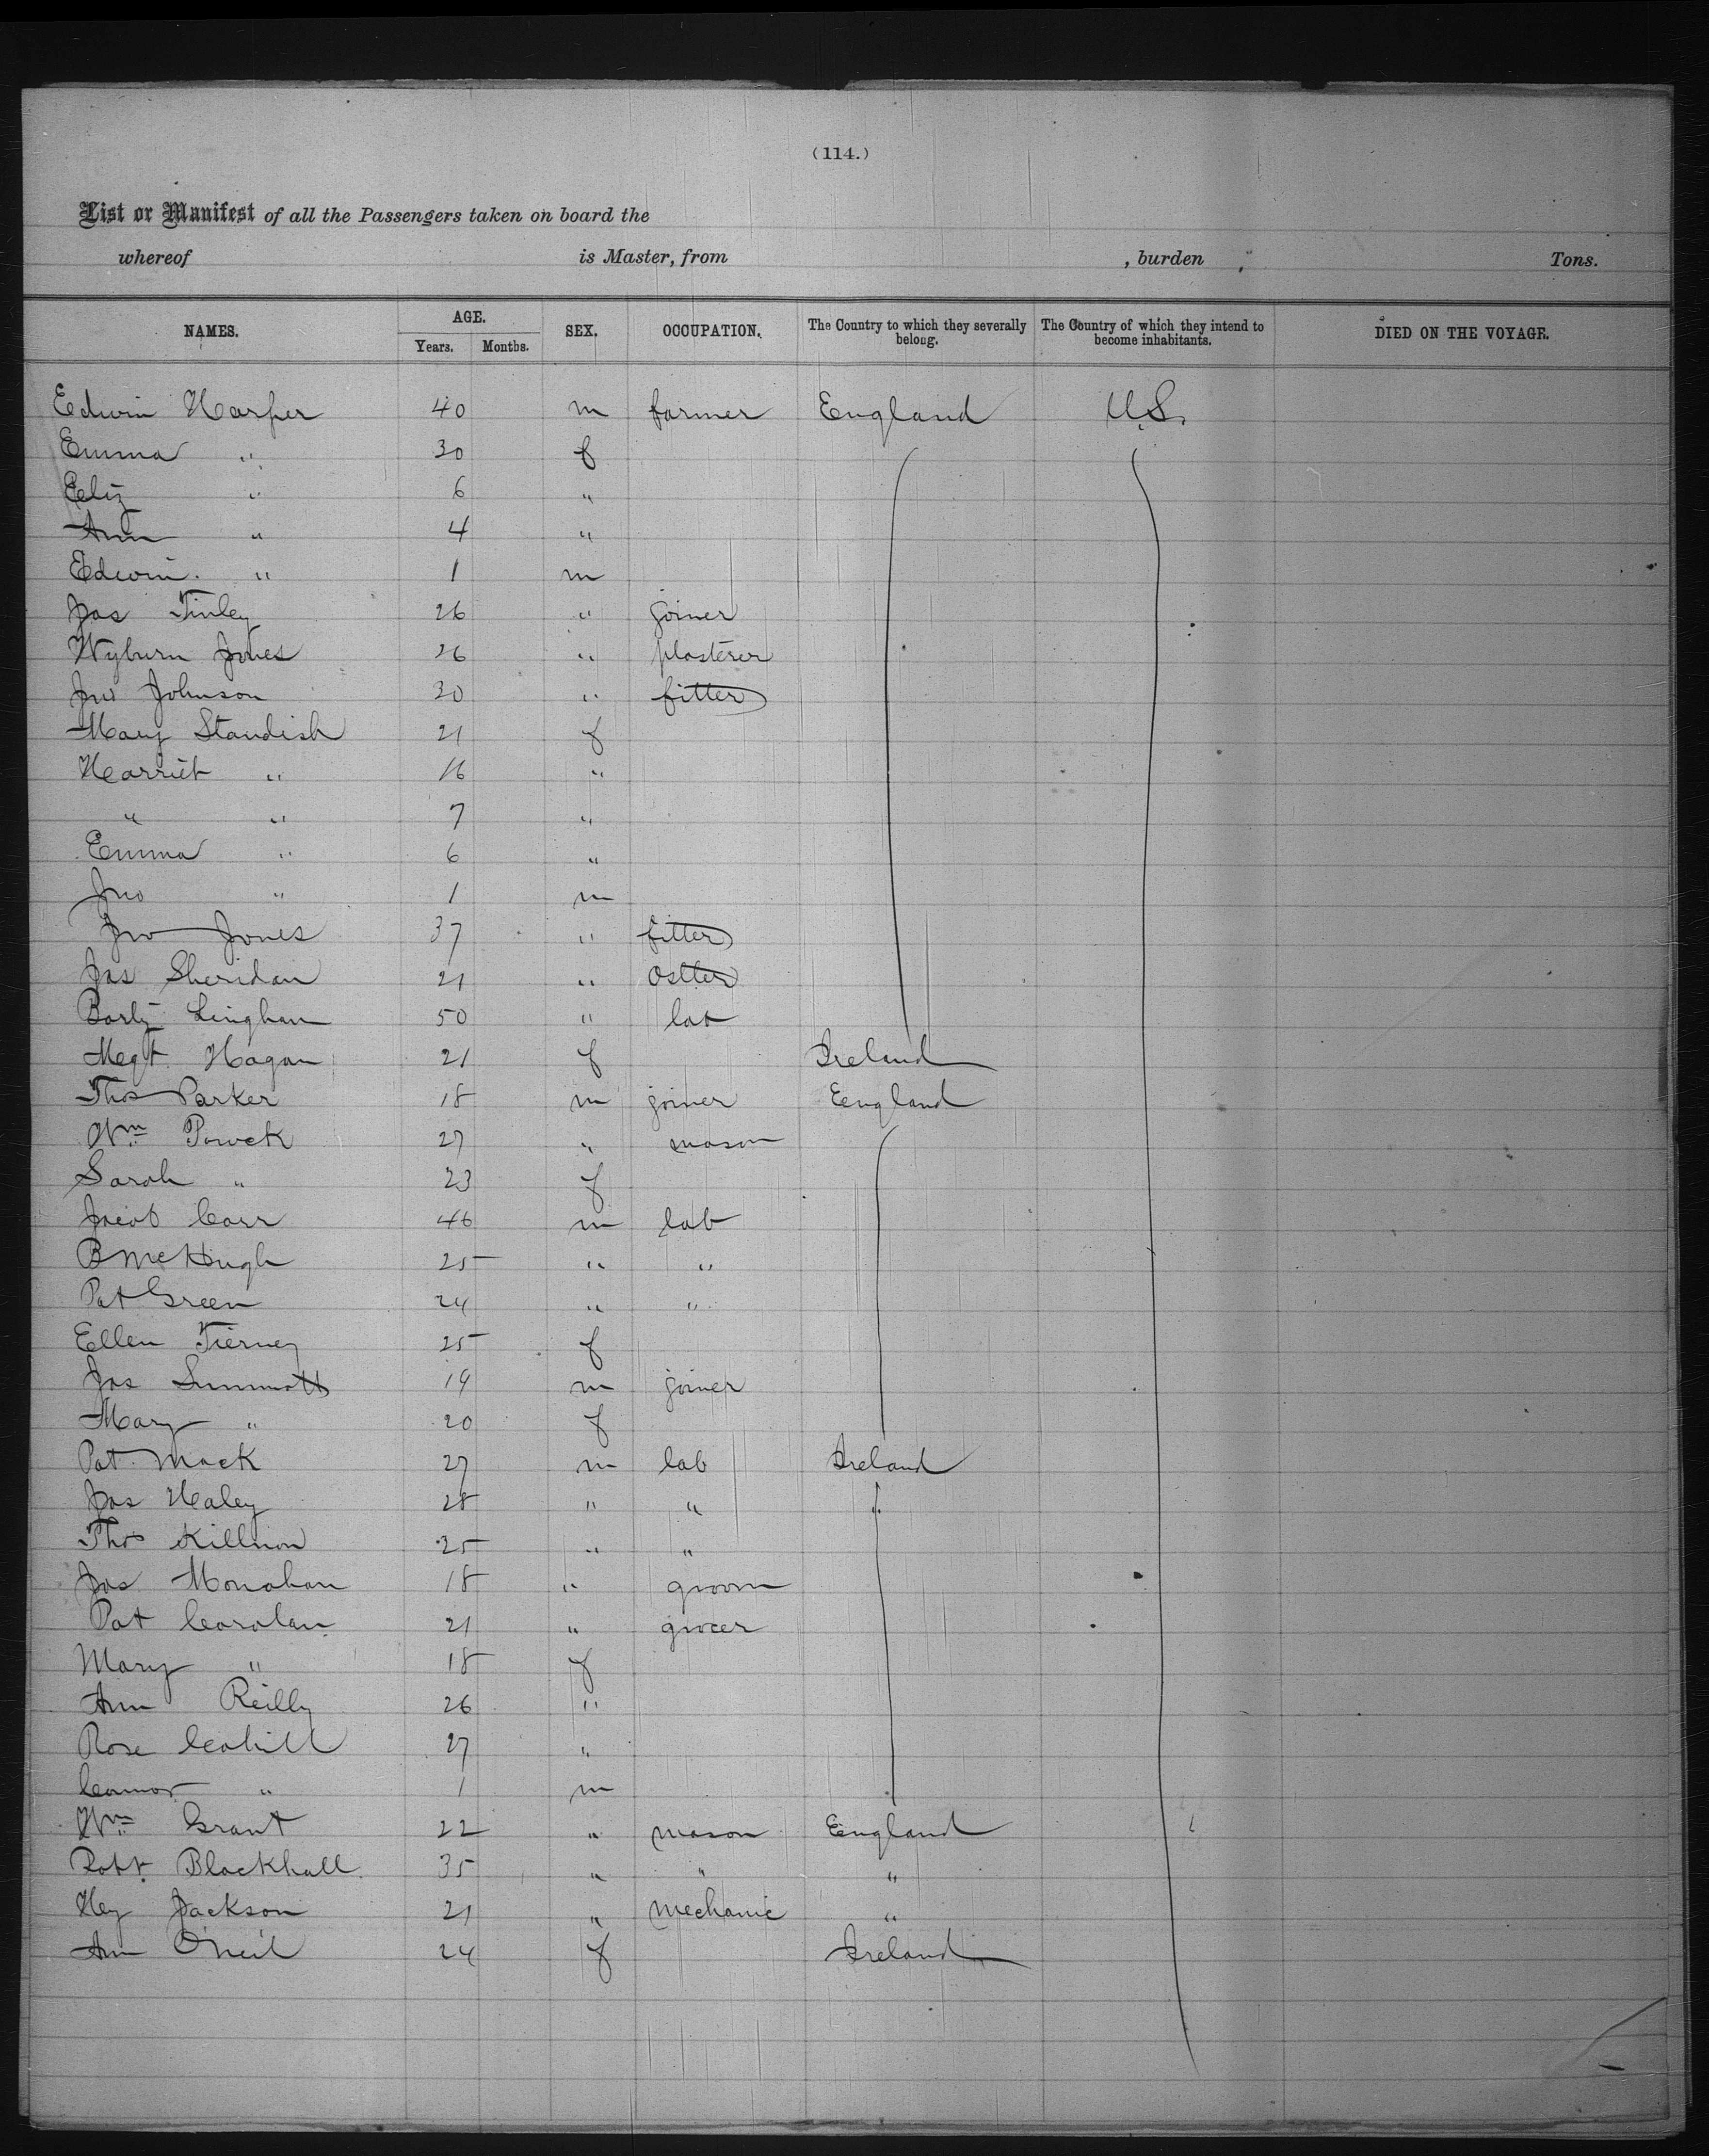 (114.)
List or Manifest of all the Passengers taken on board the
whereof is Master, from , burden Tons.
NAMES. AGE. Years. Months. SEX. OCCUPATION. The Country to which they severally belong. The Country of which they intend to become inhabitants. DIED ON THE VOYAGE.
Edwin Harper 40 m farmer England U.S.
Emma " 30 f
Eliz " 6 "
Ann " 4 "
Edwin " 1 m
Jas Tinley 26 " joiner
Wyburn Jones 26 " plasterer
Jno Johnson 30 " fitter
Mary Standish 21 f
Harriet " 16 "
" " 7 "
Emma " 6 "
Jno " 1 m
Jno Jones 37 " fitter
Jas Sheridan 21 " ostler
Lingham 50 " lab
Megt Hagan 21 f Ireland
Thos Parker 18 m joiner England
Wm 27 " mason
Sarah " 23 f
Jacob Carr 46 m lab
B McHugh 25 " "
Pat Green 24 " "
Ellen Tierney 25 f
Jas 19 m joiner
Mary " 20 f
Pat Mack 27 m lab Ireland
Jas Haley 28 " "
Thos Killnon 25 " "
Jas Monahan 18 " groom
Pat Carolan 21 " grocer
Mary " 18 f
Ann Reilly 26 "
Rose Cahill 27 "
Connor " 1 m
Wm Grant 22 " mason England
Robt Blackhall 35 " " "
Hey Jackson 21 " mechanic "
Ann O'Neil 24 f Ireland